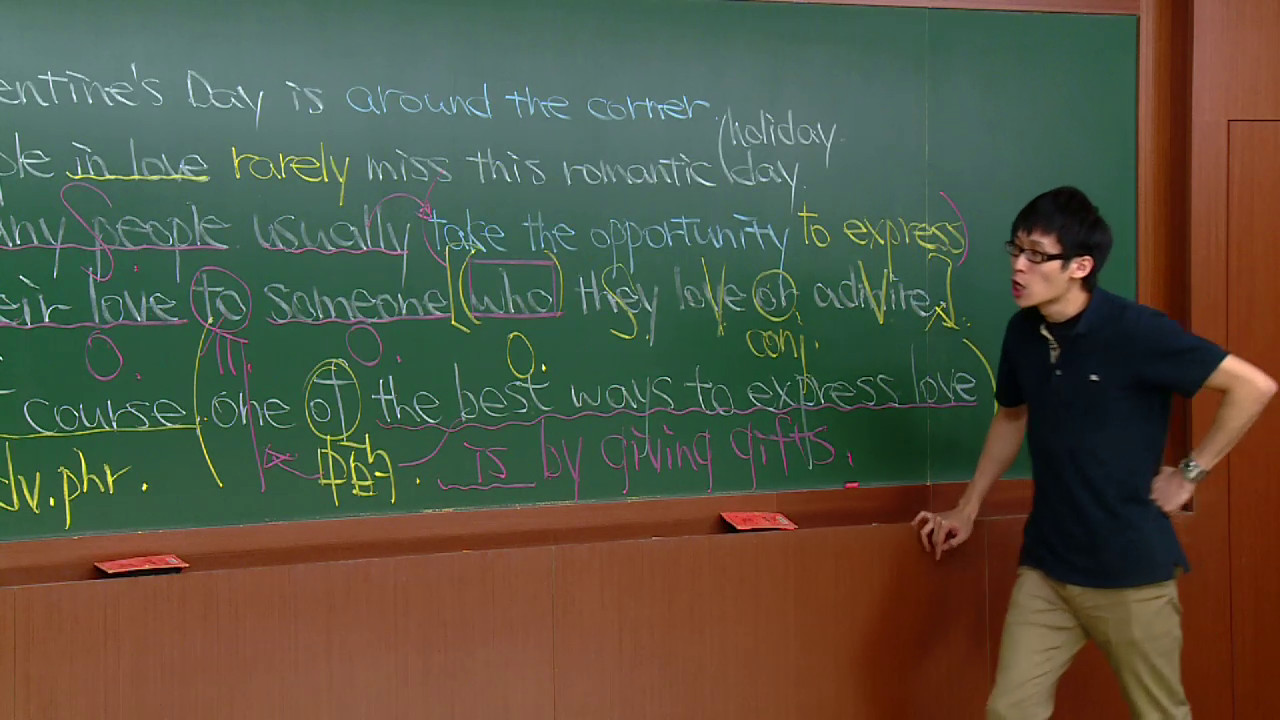 entine's Day is around the corner.
(holiday
ple in love rarely miss this romantic day.
any people usually take the opportunity to express
eir love to someone [(who) they love or admire.]
O. O. O. conj.
f course, one of the best ways to express love
dv. phr. is by giving gifts.